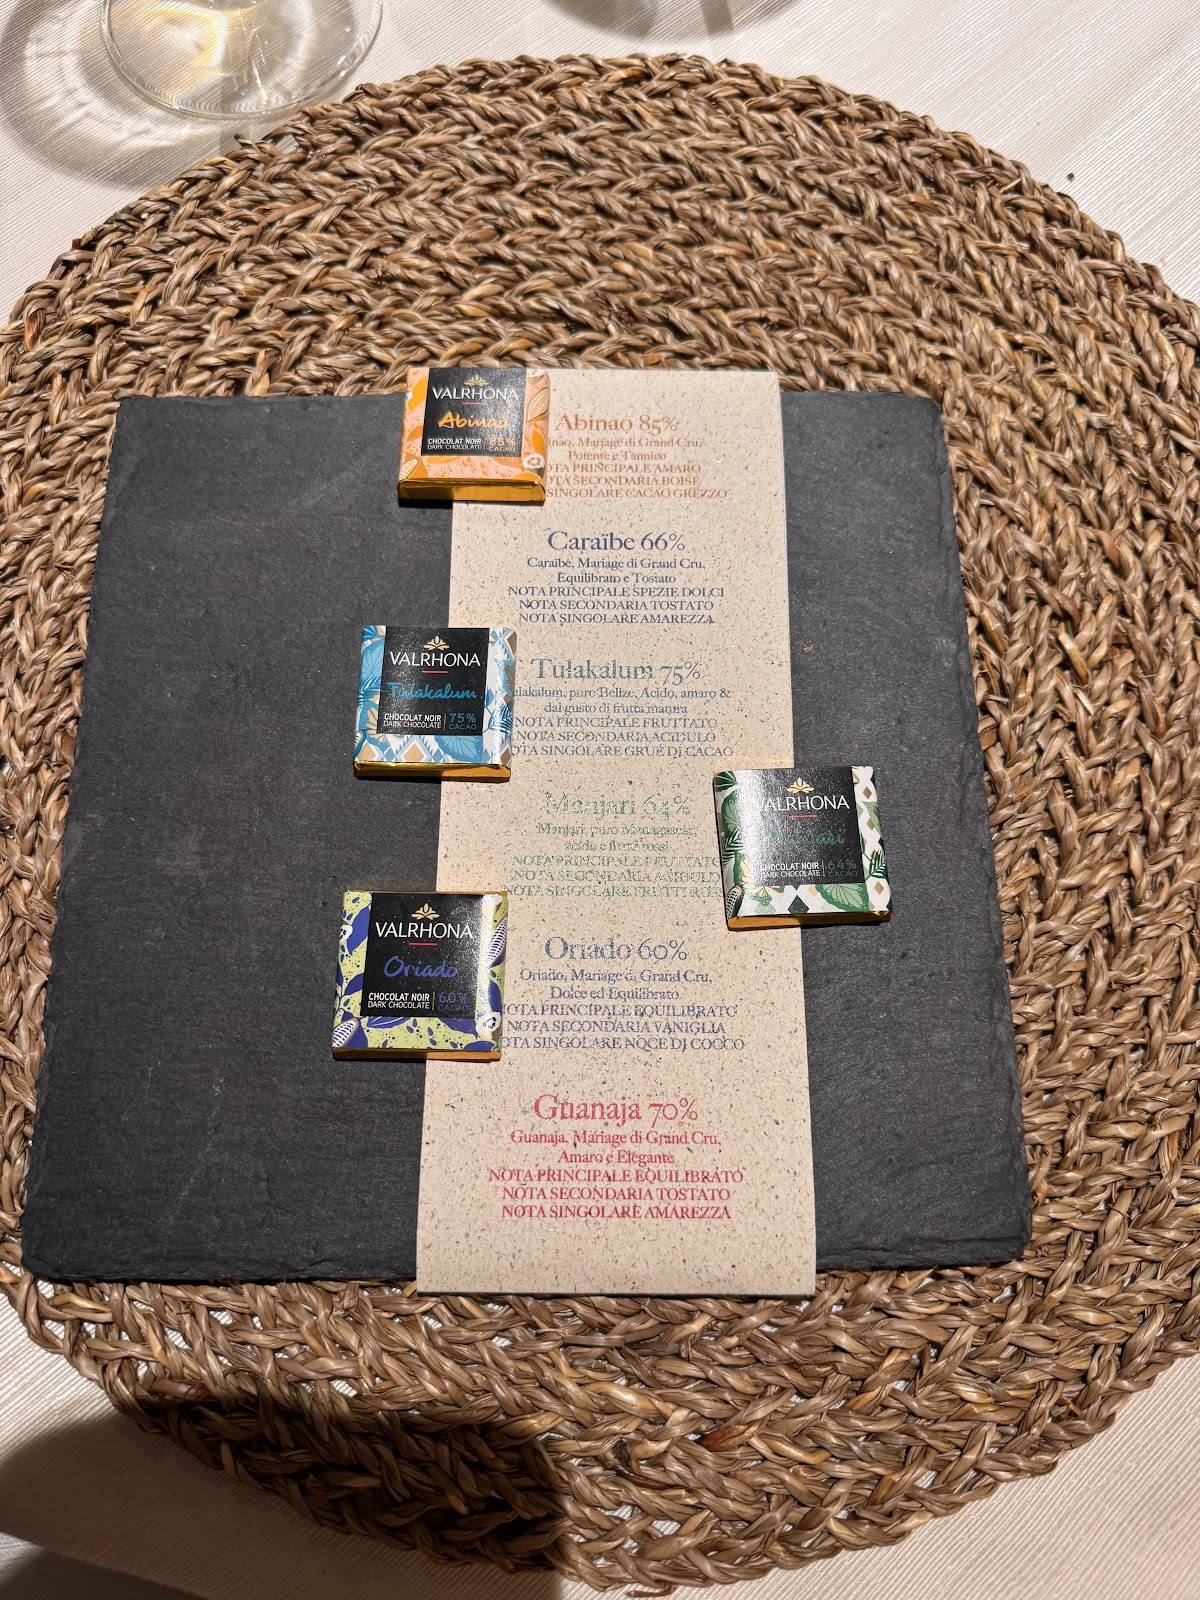 VALRHONA
Abinao
CHOCOLAT NOIR
DARK CHOCOLATE
85%
CACAO
Abinao 85%
Mariage di Grand Cru,
Potente e Tannico
PRINCIPALE AMARO
SECONDARIA BOISÉ
SINGOLARE CACAO GREZZO
Caraïbe 66%
Caraïbe, Mariage di Grand Cru,
Equilibrato e Tostato
NOTA PRINCIPALE SPEZIE DOLCI
NOTA SECONDARIA TOSTATO
NOTA SINGOLARE AMAREZZA
VALRHONA
Tulakalum
CHOCOLAT NOIR
DARK CHOCOLATE
75%
CACAO
Tulakalum 75%
puro Belize, Acido, amaro &
dal gusto di frutta matura
NOTA PRINCIPALE FRUTTATO
NOTA SECONDARIA ACIDULO
SINGOLARE GRUÉ DI CACAO
VALRHONA
Manjari
CHOCOLAT NOIR
DARK CHOCOLATE
64%
CACAO
Manjari 64%
Manjari, puro Madagascar,
acido e frutti rossi
NOTA PRINCIPALE FRUTTATO
NOTA SECONDARIA ACIDULO
NOTA SINGOLARE FRUTTI
VALRHONA
Oriado
CHOCOLAT NOIR
DARK CHOCOLATE
60%
CACAO
Oriado 60%
Oriado, Mariage di Grand Cru,
Dolce ed Equilibrato
NOTA PRINCIPALE EQUILIBRATO
NOTA SECONDARIA VANIGLIA
SINGOLARE NOCE DI COCCO
Guanaja 70%
Guanaja, Mariage di Grand Cru,
Amaro e Elegante
NOTA PRINCIPALE EQUILIBRATO
NOTA SECONDARIA TOSTATO
NOTA SINGOLARE AMAREZZA